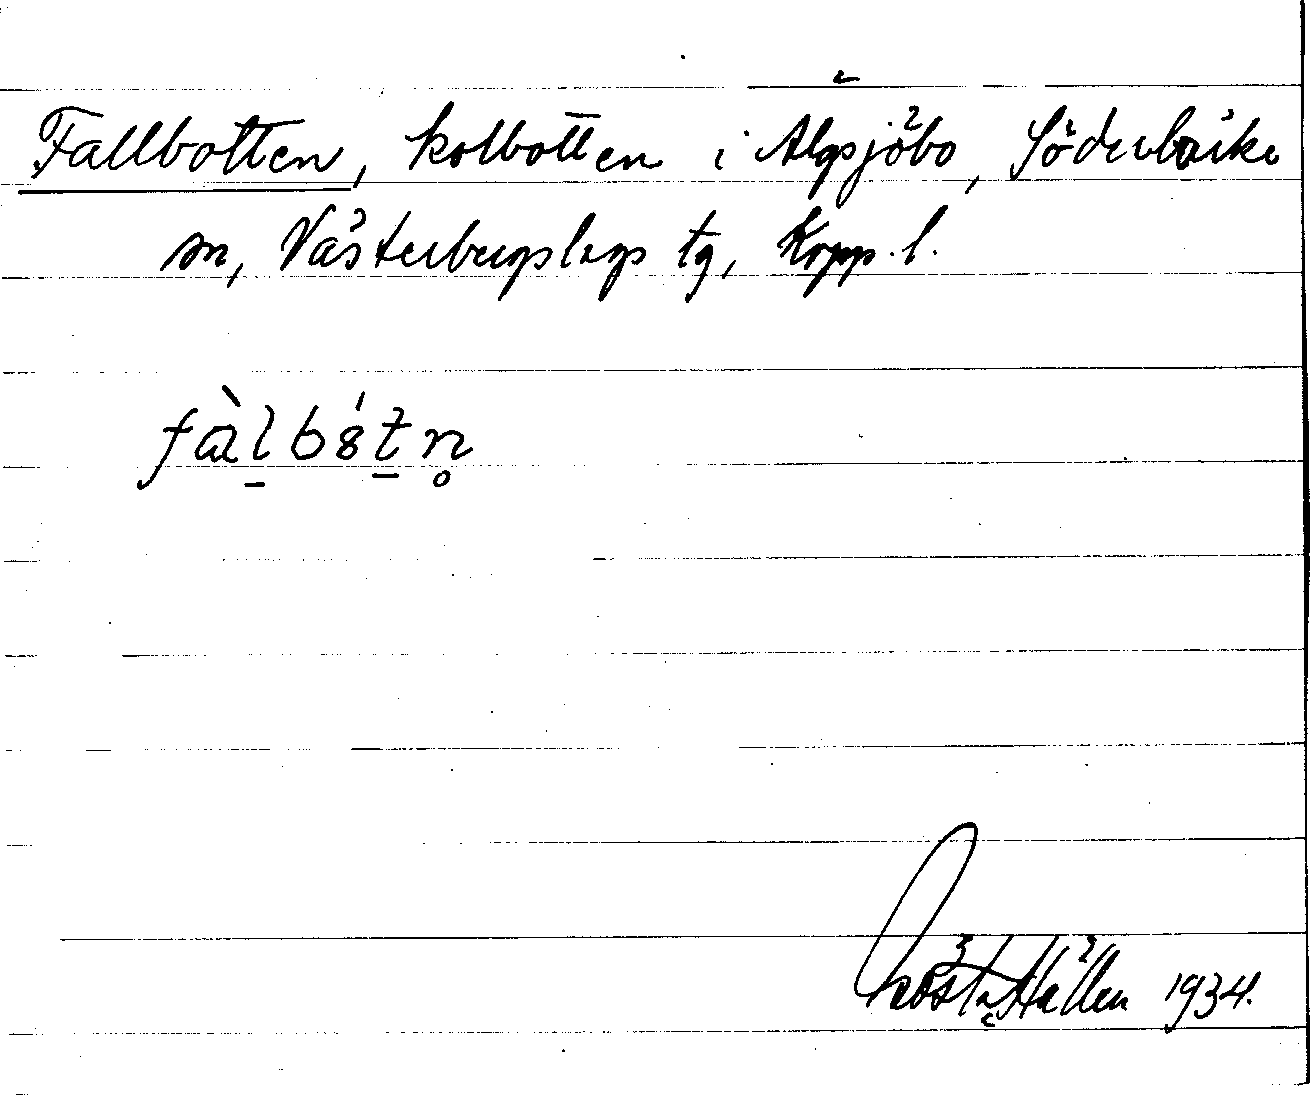 Fallbotten, kolbotten i Älgsjöbo, Söderbärke
sn, Västerbergslags tg, Kopp. l.
fàlb8́tn̥
Gösta Hällen 1934.